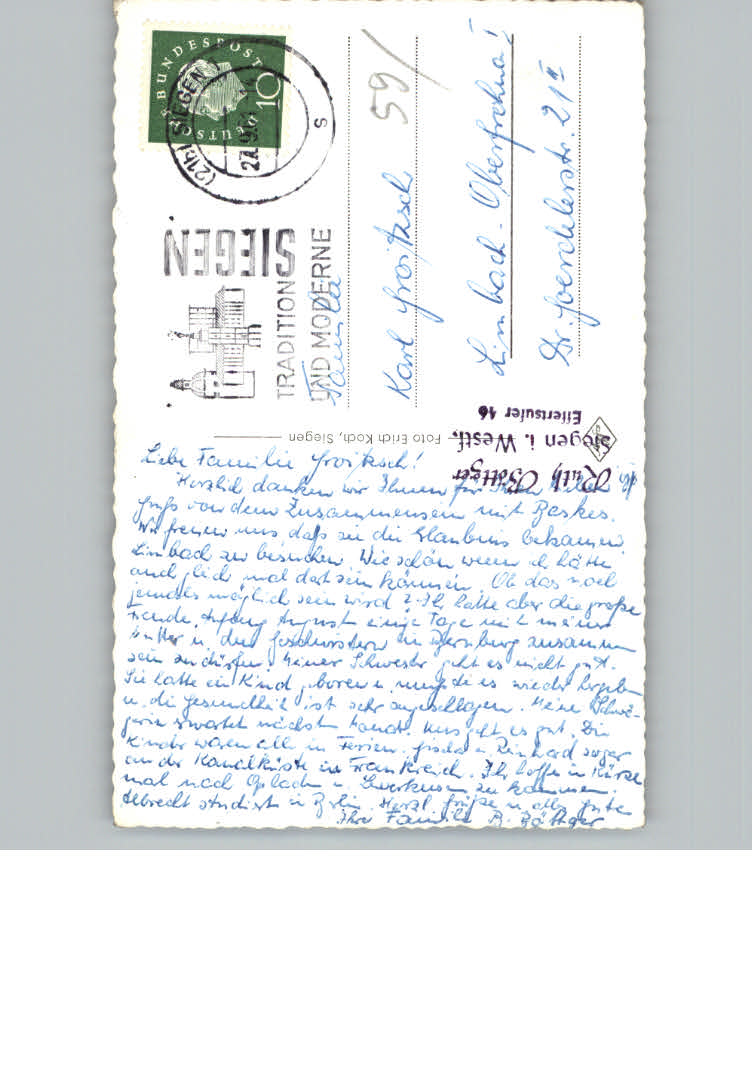 DEUTSCHE BUNDESPOST
10
(21b) SIEGEN
27.9.61
s
SIEGEN
TRADITION
UND MODERNE
59/
Familie
Karl Groitzsch
Limbach-Oberfrohna I
Dr. Goerdelerstr. 21 II
Foto Erich Koch, Siegen
Ruth Böttger
Siegen i. Westf.
Effertsufer 16
Liebe Familie Groitzsch!
Herzlich danken wir Ihnen für Ihren lieben
Gruß von dem Zusammensein mit Beskes.
Wir freuen uns daß sie die Erlaubnis bekamen,
Limbach zu besuchen. Wie schön wenn ich hätte
auch gleich mal dort sein können. Ob das noch
jemals möglich sein wird? Ich hatte aber die große
Freude, Anfang August einige Tage mit meiner
Mutter u. den Geschwistern in Bernburg zusammen
sein zu dürfen. Meiner Schwester geht es nicht gut.
Sie hatte ein Kind geboren u. mußte es wieder hergeben
u. die Gesundheit ist sehr angeschlagen. Meine Schwä-
gerin erwartet nächsten Monat. Uns geht es gut. Die
Kinder waren alle in Ferien. Gisela u. Reinhard sogar
an der Kanalküste in Frankreich. Ich hoffe in Kürze
mal nach Opladen u. Leverkusen zu kommen.
Albrecht studiert in Berlin. Herzl. Grüße u. alles Gute
Ihre Familie R. Böttger